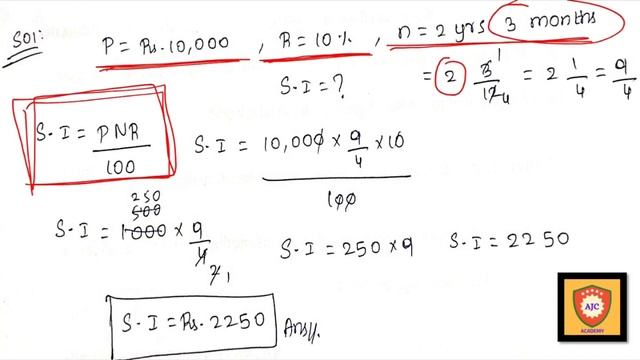 Sol:
P = Rs. 10,000 , R = 10% , n = 2 yrs 3 months
S.I = ?
= 2 3/12 = 2 1/4 = 9/4
1
4
S.I = PNR/100
S.I = 10,000 × 9/4 × 10
100
250
500
S.I = 1000 × 9/4
2 1
S.I = 250 × 9
S.I = 2250
S.I = Rs. 2250 Ans//.
AJC
ACADEMY